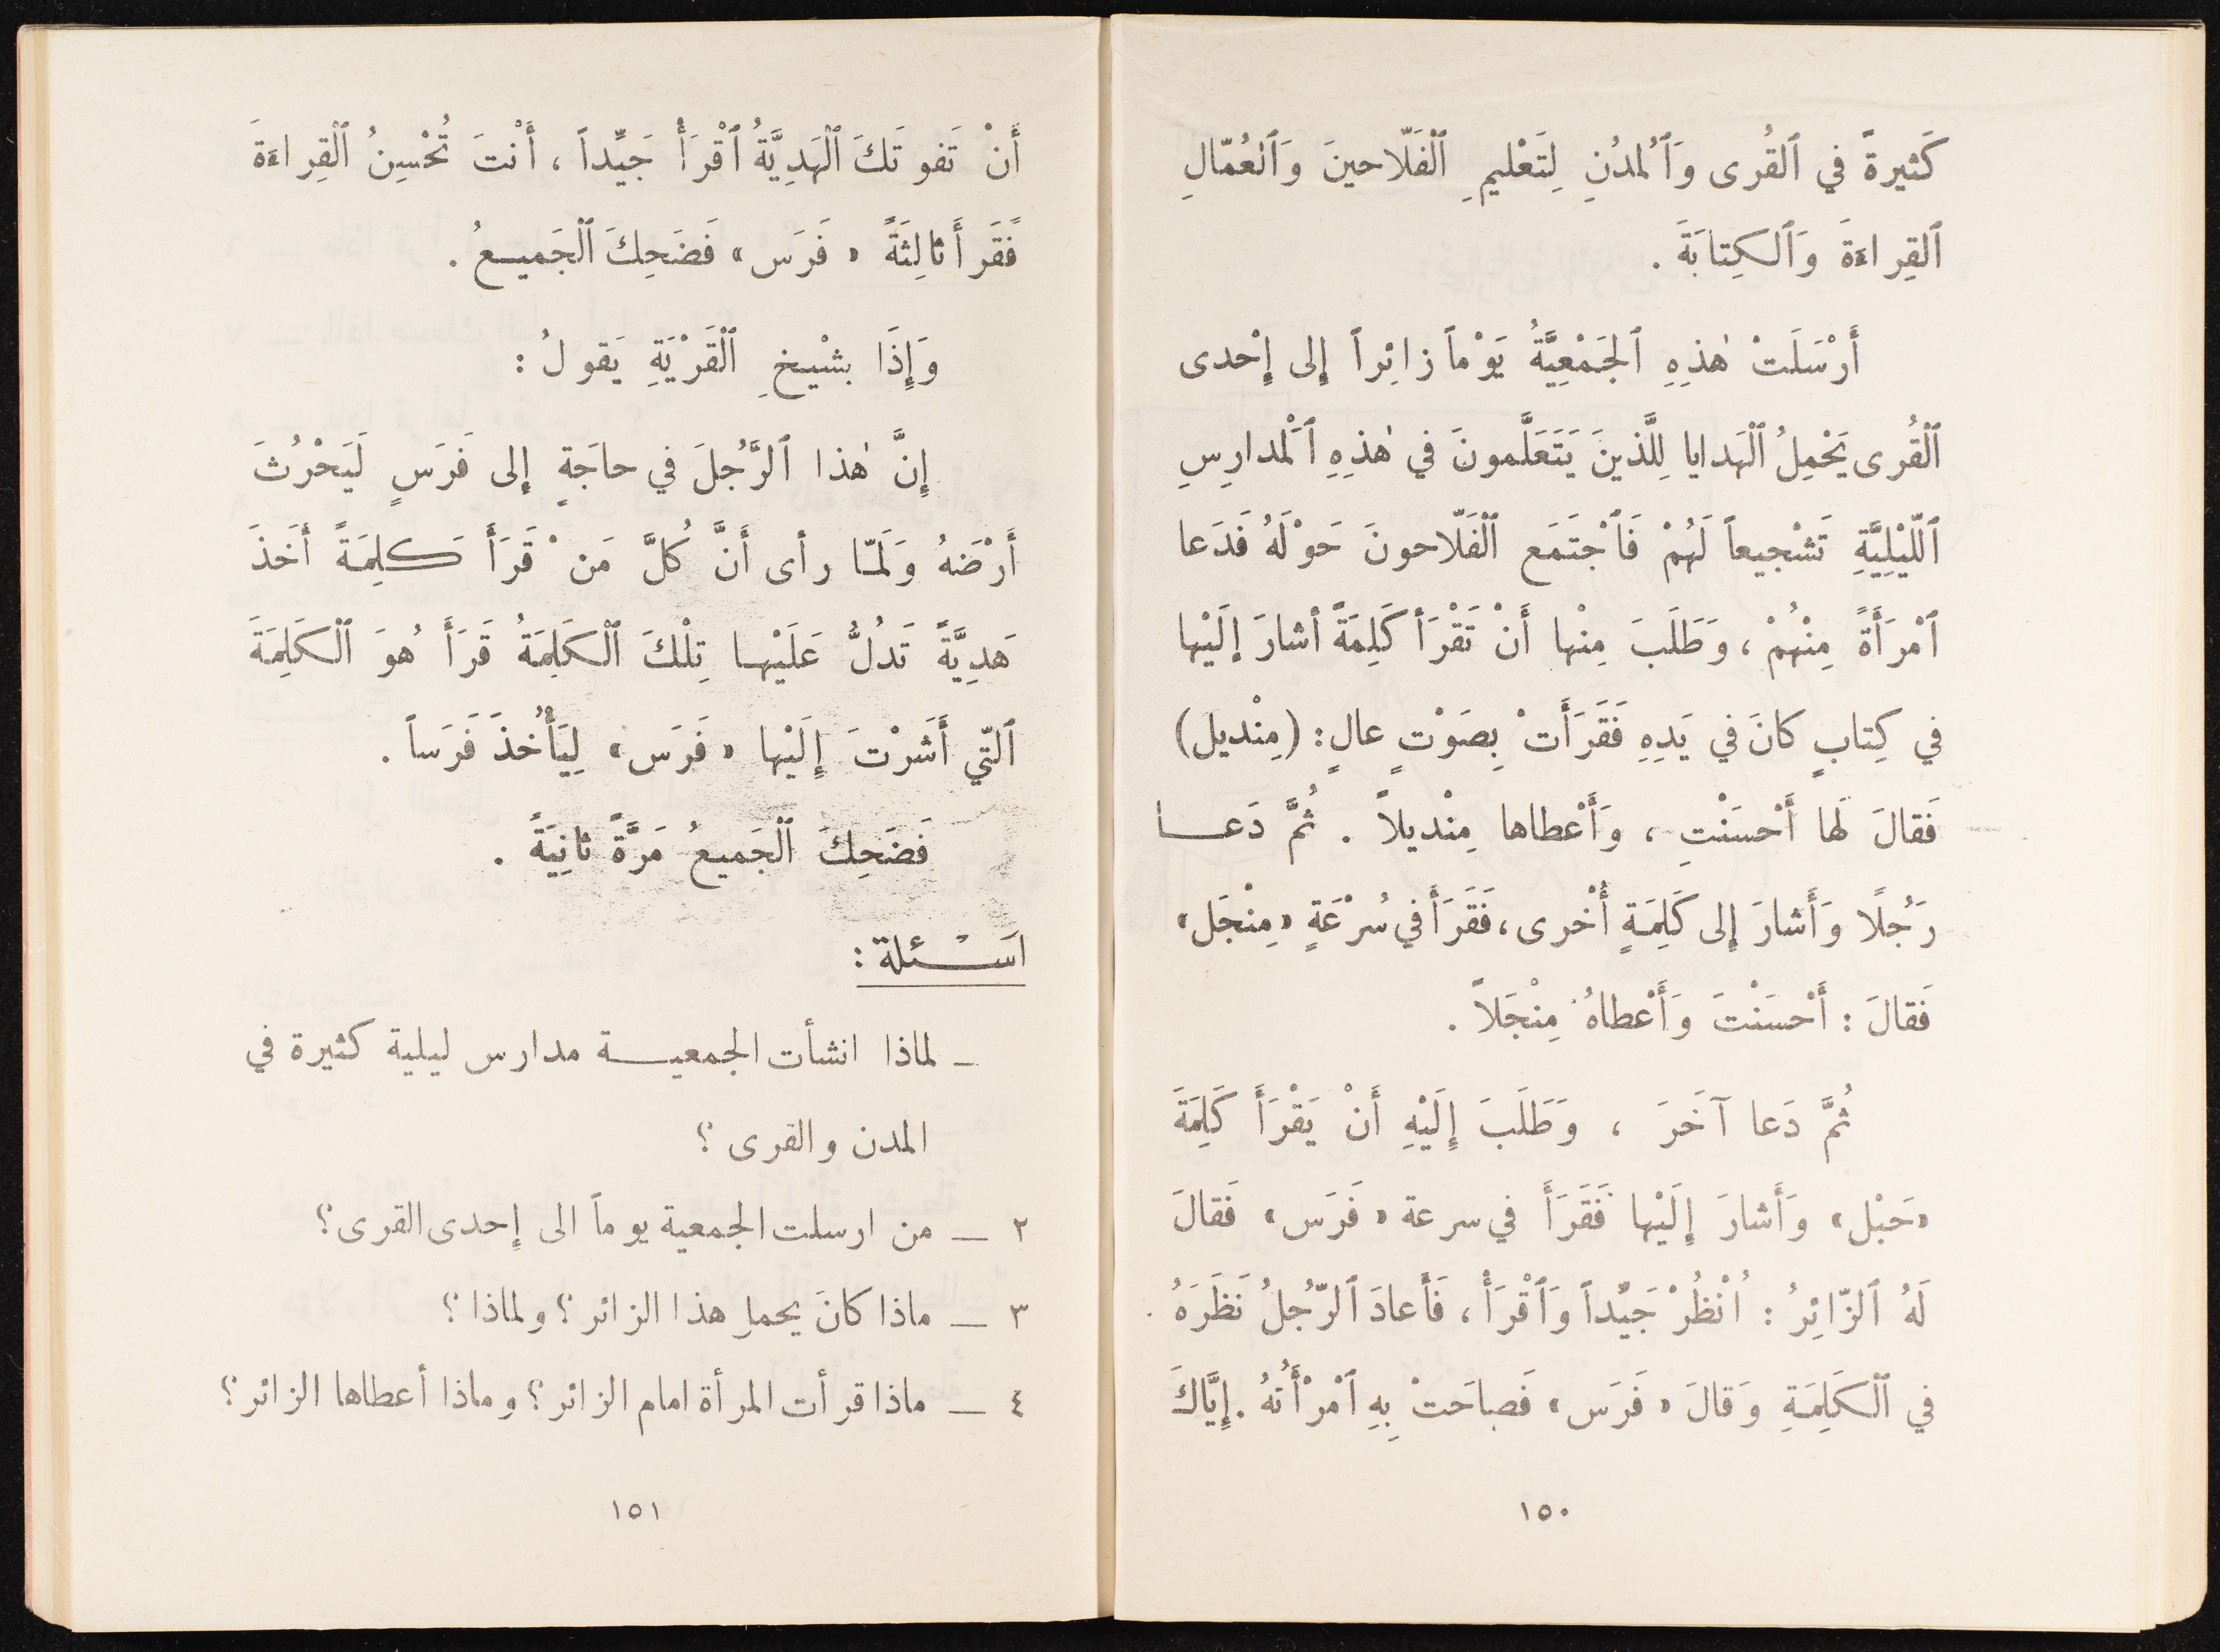 كَثيرةً في ٱلقُرى وَٱلمُدُنِ لِتَعْليمِ ٱلْفَلّاحينَ وَٱلعُمّالِ
ٱلقِراءَةَ وَٱلكِتابَةَ .
أَرْسَلَتْ هٰذِهِ ٱلجَمْعِيَّةُ يَوْماً زائِراً إِلى إِحْدى
ٱلْقُرى يَحْمِلُ ٱلْهَدايا لِلَّذينَ يَتَعَلَّمونَ في هٰذِهِ ٱلْمَدارِسِ
ٱللّيْلِيَّةِ تَشْجيعاً لَهُمْ فَٱجْتَمَع ٱلْفَلّاحونَ حَوْلَهُ فَدَعا
ٱمْرَأَةً مِنْهُمْ ، وَطَلَبَ مِنْها أَنْ تَقْرَأ كَلِمَةً أشارَ إلَيْها
في كِتابٍ كانَ في يَدِهِ فَقَرَأَتْ بِصَوْتٍ عالٍ : (مِنْديل)
فَقالَ لَها أَحْسَنْتِ ، وَأَعْطاها مِنْديلاً . ثُمَّ دَعا
رَجُلًا وَأَشارَ إِلى كَلِمَةٍ أُخْرى ، فَقَرَأَ في سُرْعَةٍ «مِنْجَل»
فَقالَ : أَحْسَنْتَ وَأَعْطاهُ مِنْجَلاً .
ثُمَّ دَعا آخَرَ ، وَطَلَبَ إِلَيْهِ أَنْ يَقْرَأَ كَلِمَةَ
«حَبْل» وَأَشارَ إِلَيْها فَقَرَأَ في سرعة «فَرَس» فَقالَ
لَهُ ٱلزّائِرُ : اُنْظُرْ جَيِّداً وَٱقْرَأْ ، فَأَعادَ ٱلرّجُلُ نَظَرَهُ
في ٱلْكَلِمَةِ وَقالَ «فَرَس» فَصاحَتْ بِهِ ٱمْرْأَتُهُ . إِيَّاكَ
١٥٠
أَنْ تَفوتَكَ ٱلْهَدِيَّةُ ٱقْرَأْ جَيِّداً ، أَنْتَ تُحْسِنُ ٱلْقِراءَةَ
فَقَرأَ ثالِثَةً «فَرَس» فَضَحِكَ ٱلْجَميعُ .
وَإِذَا بشْيخِ ٱلْقَرْيَةِ يَقولُ :
إِنَّ هٰذا ٱلرَّجُلَ في حاجَةٍ إِلى فَرَسٍ لَيَحْرُثَ
أَرْضَهُ وَلَمّا رأى أَنَّ كُلَّ مَنْ قَرَأَ كَلِمَةً أخَذَ
هَدِيَّةً تَدُلُّ عَلَيْها تِلْكَ ٱلْكَلِمَةُ قَرَأَ هُوَ ٱلْكَلِمَةَ
ٱلتّي أَشَرْتَ إِلَيْها «فَرَس» لِيَأْخُذَ فَرَساً .
فَضَحِكَ ٱلْجَميعُ مَرَّةً ثانِيَةً .
اَسْئلة :
ـ لماذا انشأت الجمعية مدارس ليلية كثيرة في
المدن والقرى ؟
٢ ـ من ارسلت الجمعية يوماً الى إحدى القرى؟
٣ ـ ماذا كانَ يحمل هذا الزائر؟ ولماذا ؟
٤ ـ ماذا قرأت المرأة امام الزائر؟ وماذا أعطاها الزائر؟
١٥١